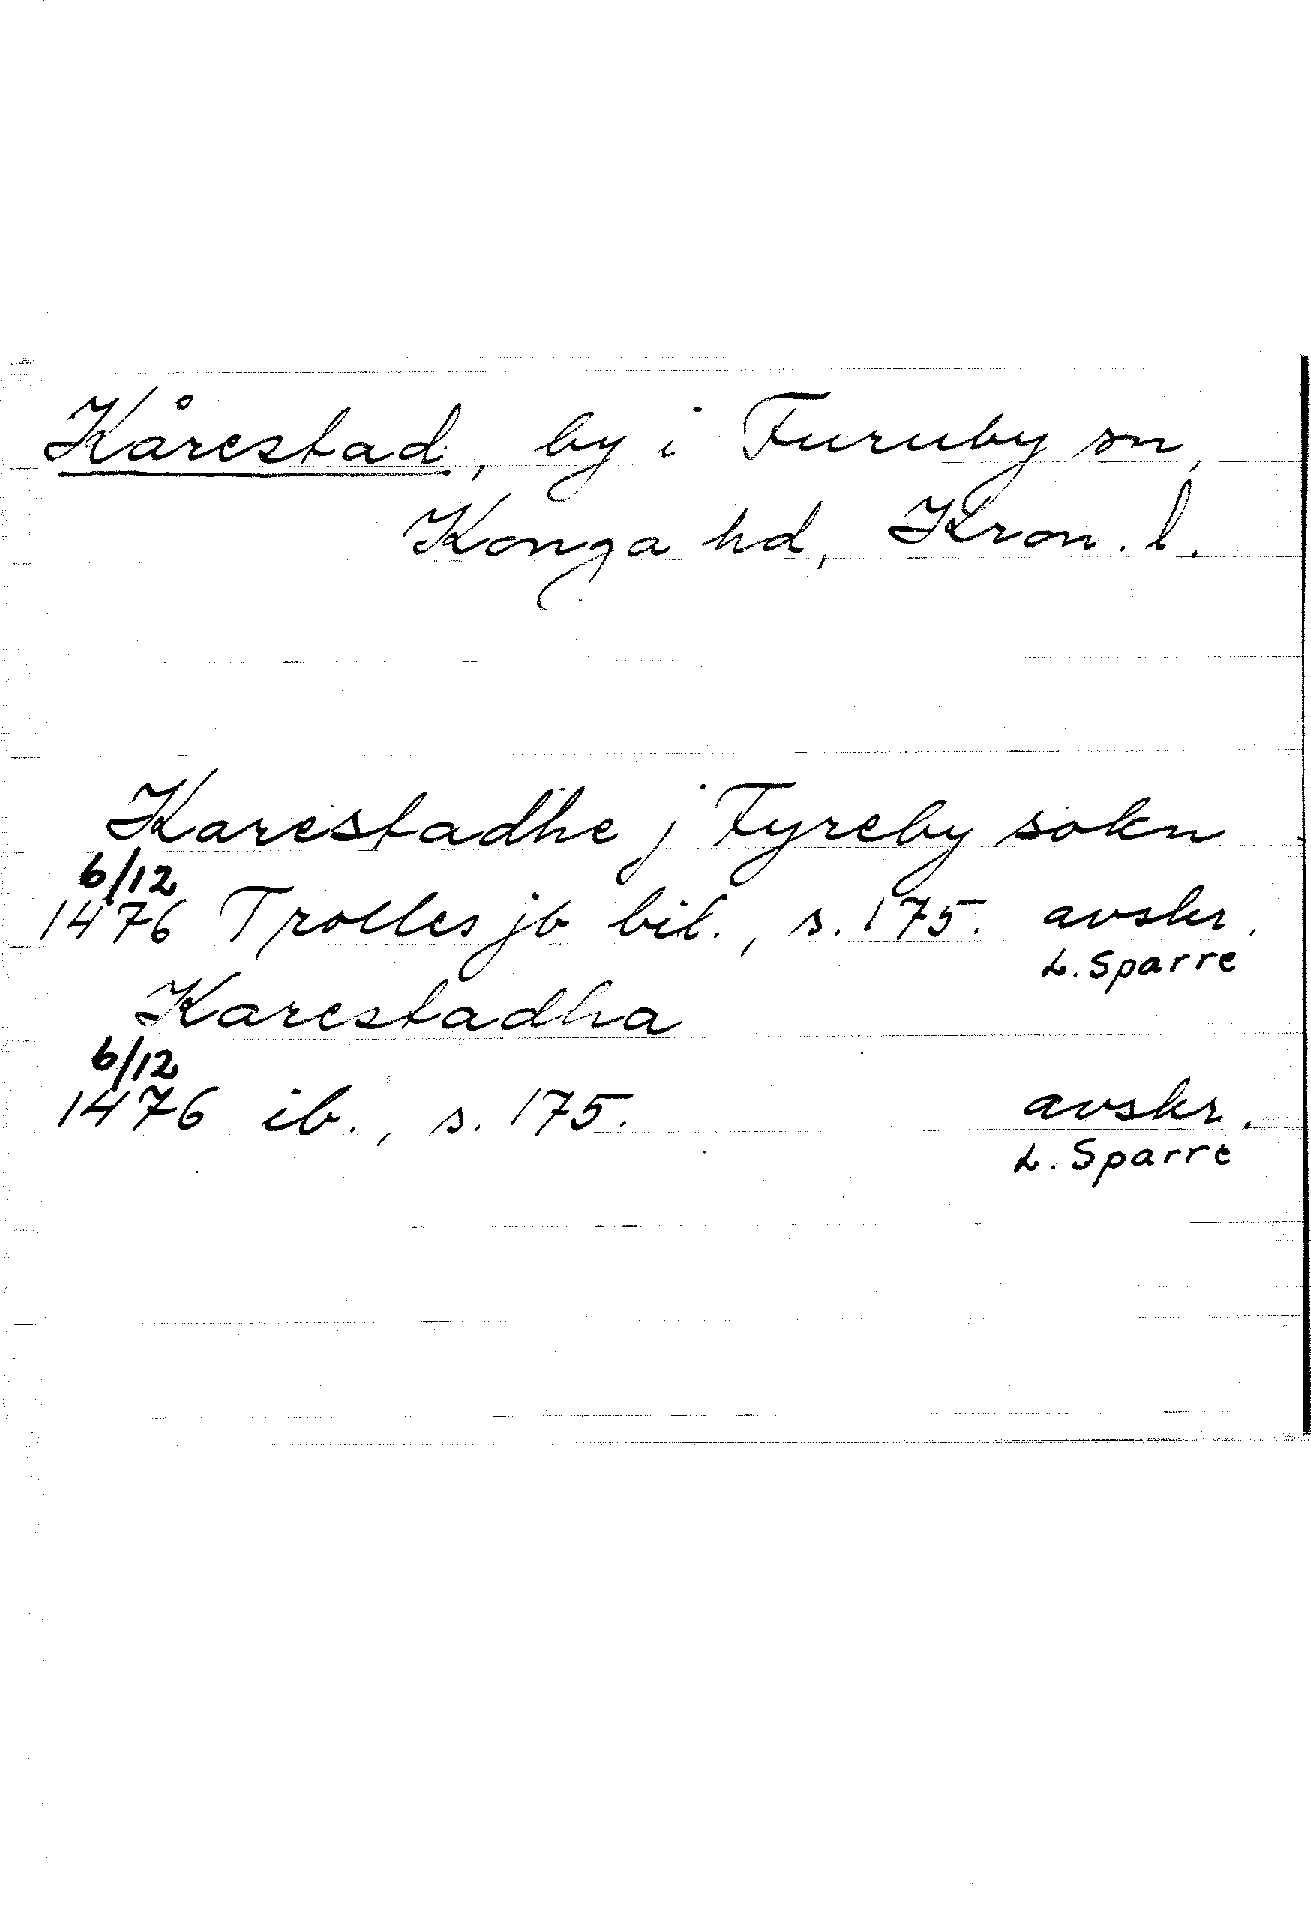 Kårestad, by i Furuby sn,
Konga hd, Kron. l.
Karestadhe j Fyreby sokn
6/12
1476 Trolles jb bil., s. 175. avskr.
L. Sparre
Karestadha
6/12
1476 ib., s. 175. avskr.
L. Sparre